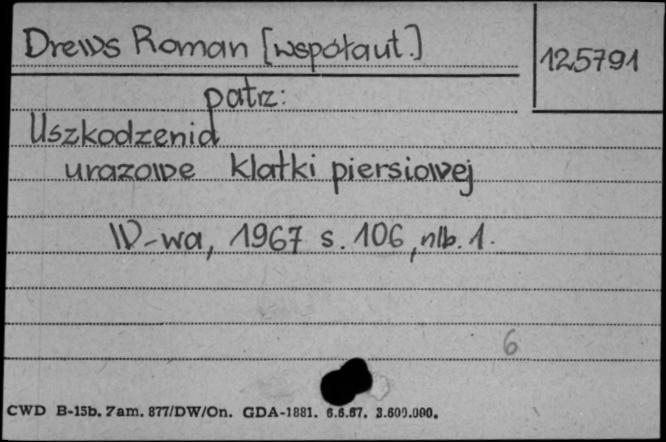 Drews Roman [współaut.]
125791
patrz:
Uszkodzenia
urazowe klatki piersiowej
W-wa, 1967 s. 106, nlb. 1.
6
CWD B-15b. Zam. 877/DW/On. GDA-1881. 6.6.67. 3.600.000.